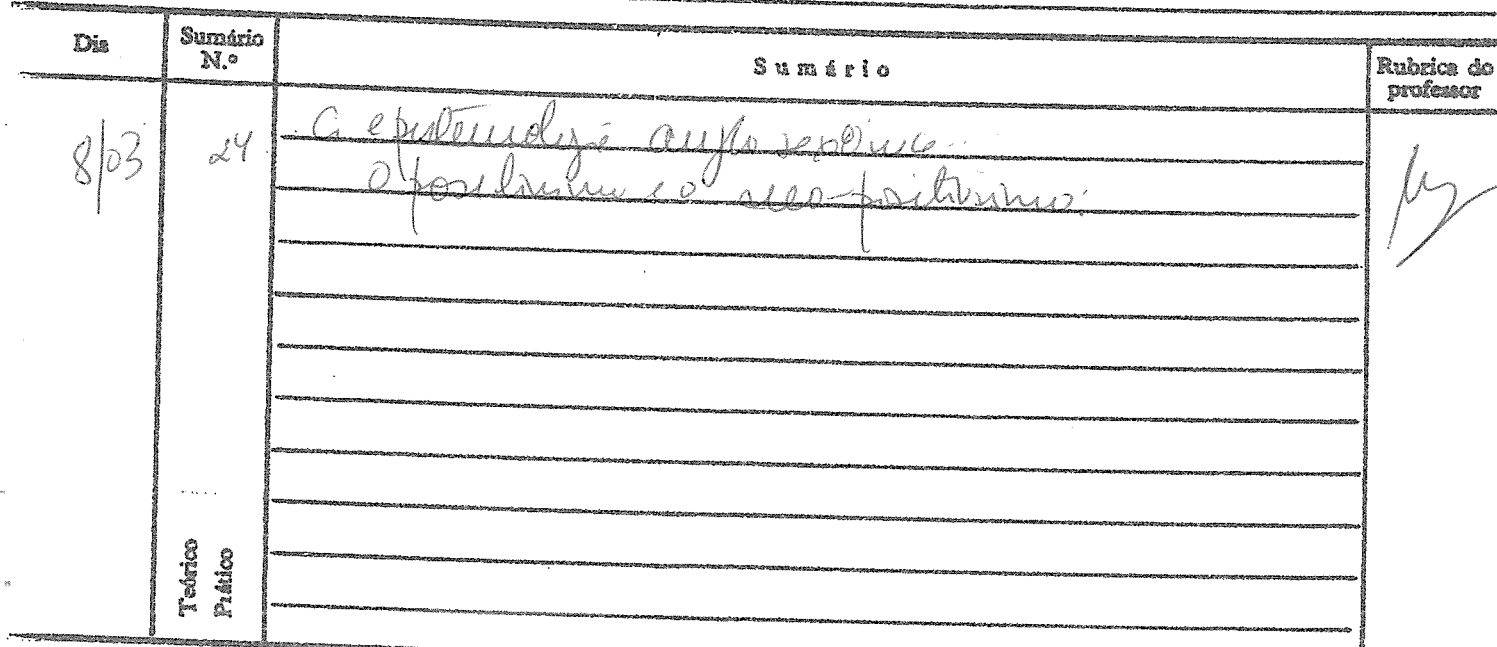 Dia
Sumário N.º
Sumário
Rubrica do professor
8/03
24
A epistemologia anglo saxónica.
O positivismo e o neo-positivismo.
Teórico
Prático